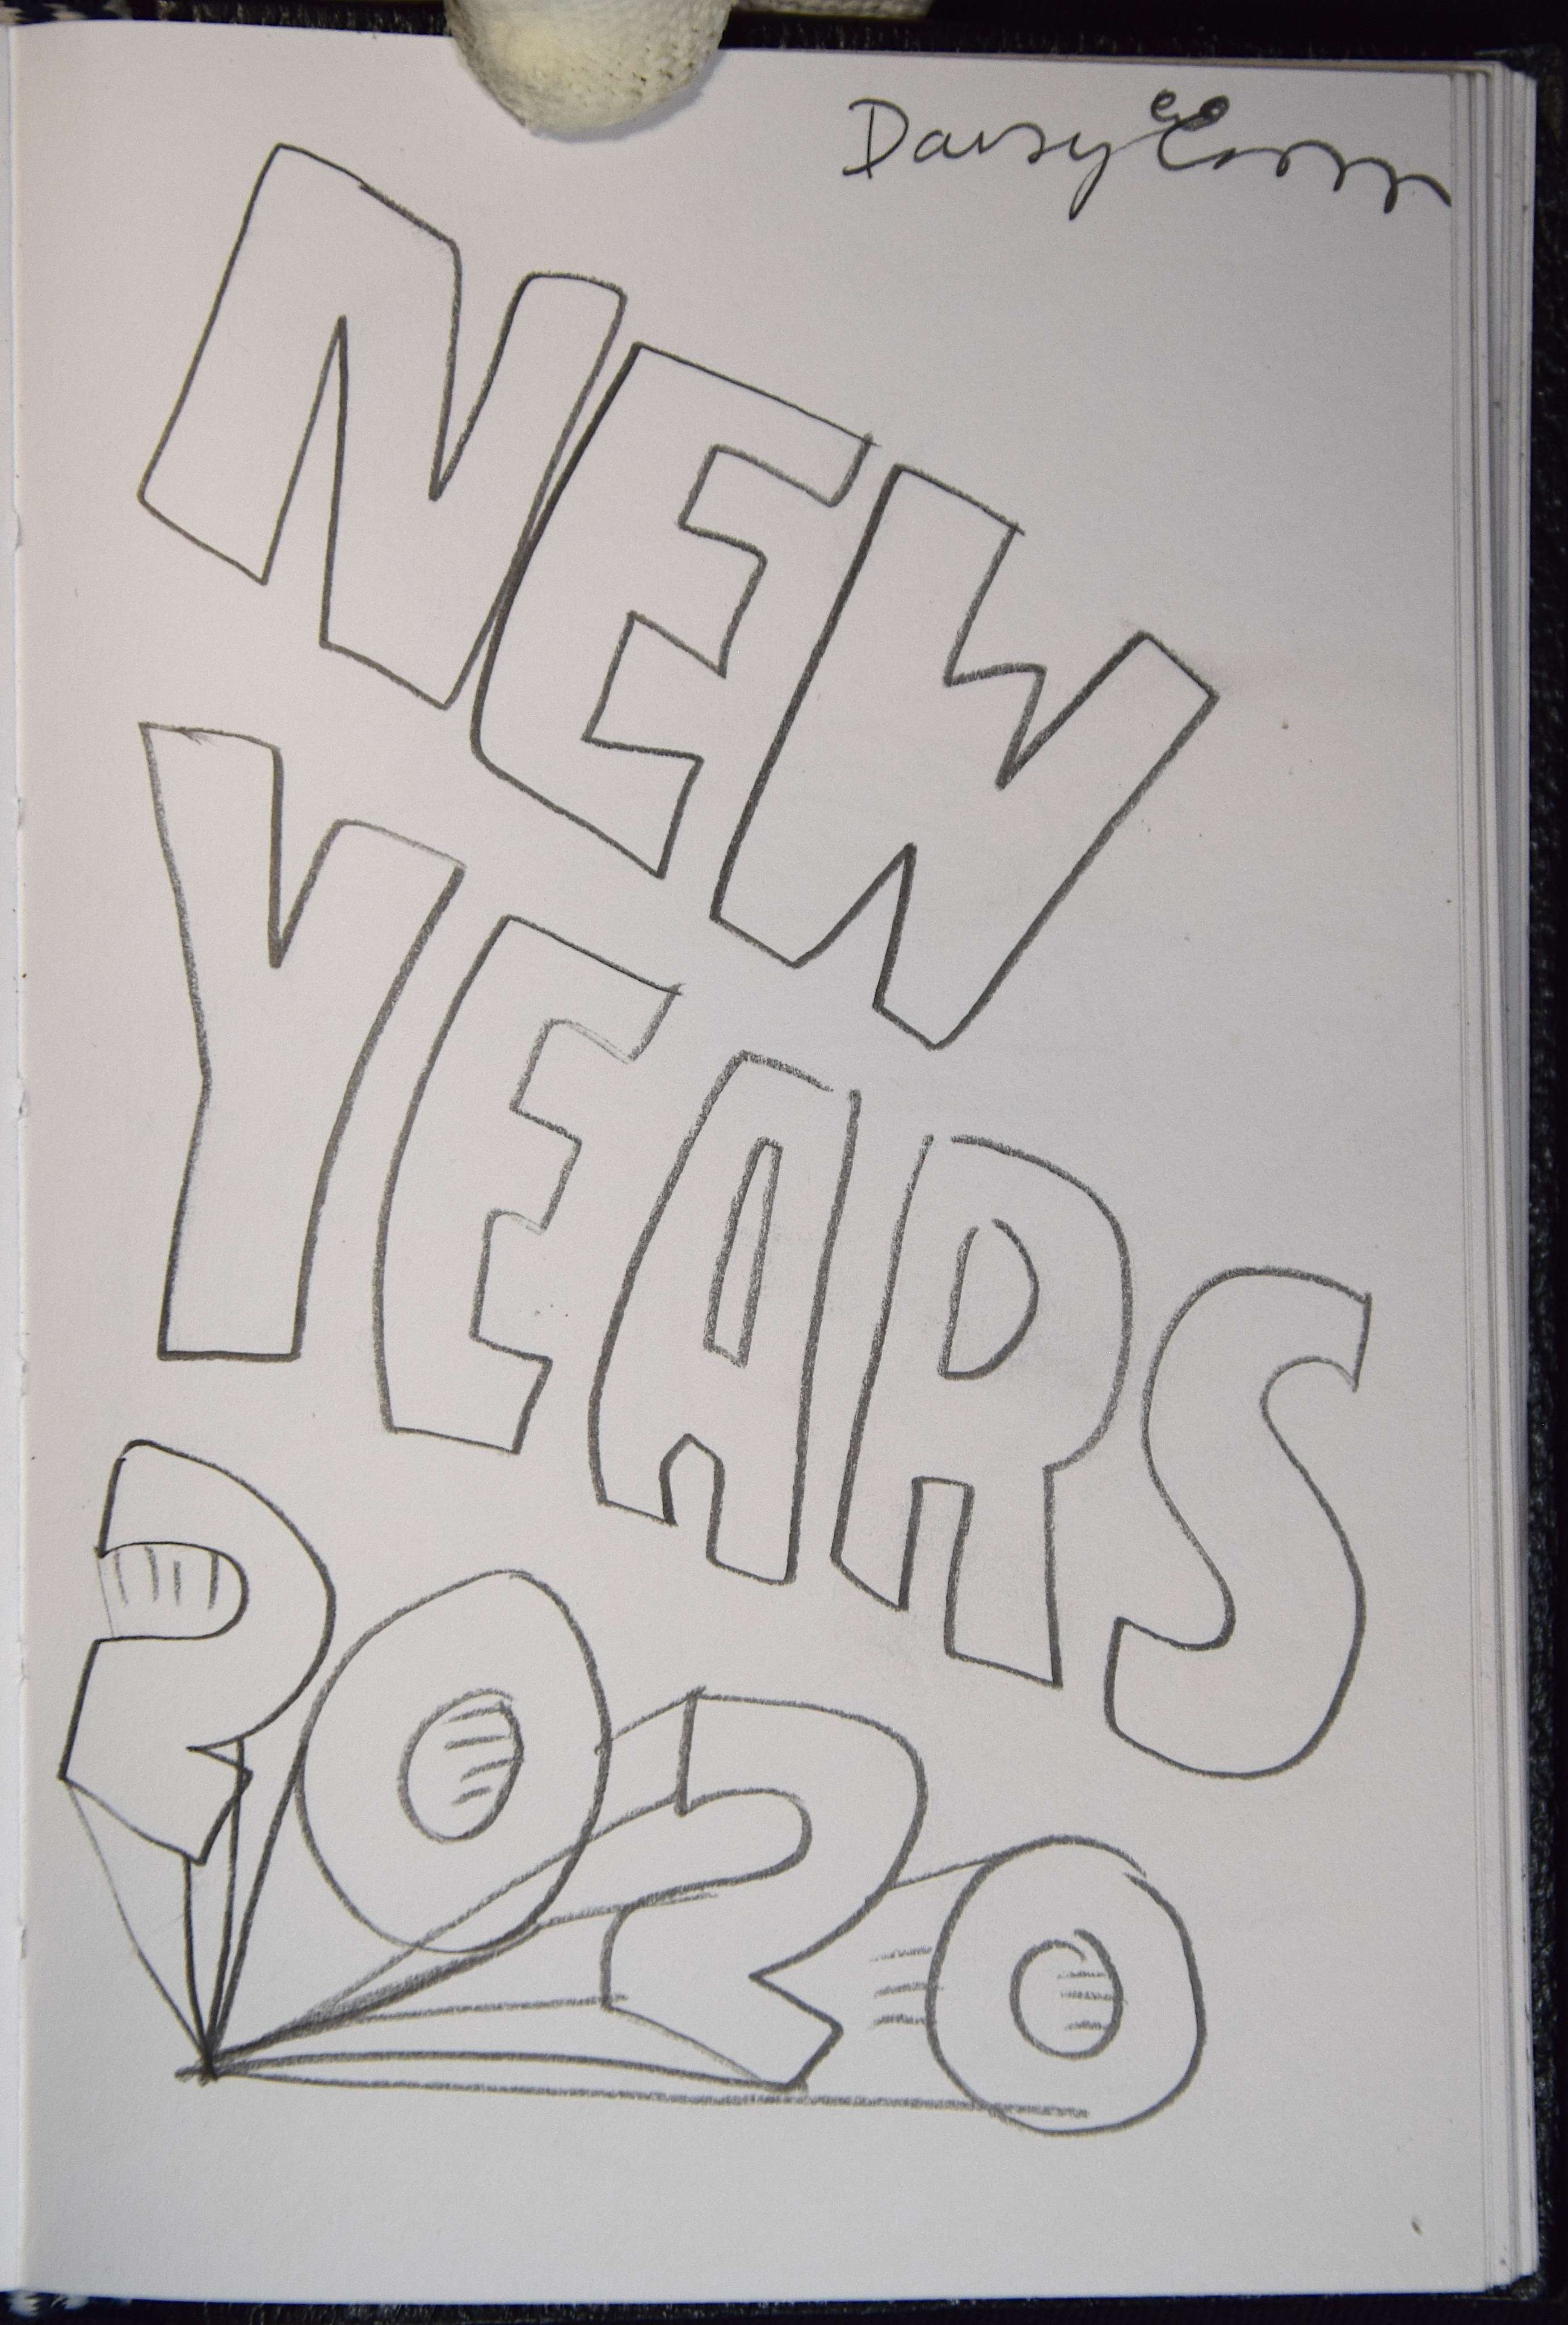 Daisy
NEW
YEARS
2020